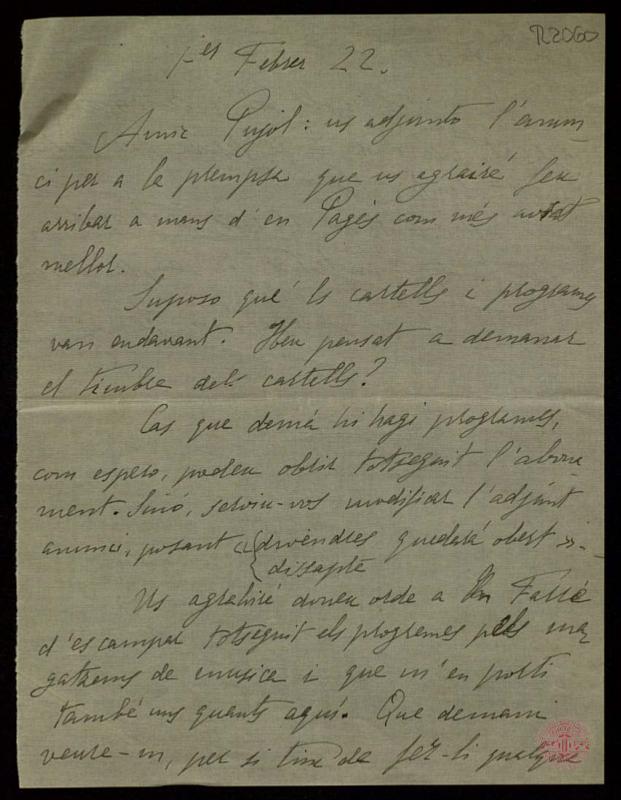 R2060
1er Febrer 22.
Amic Pujol: us adjunto l'anun-
ci per a la prempsa que us agrairé feu
arribar a mans d'en Pagès com més aviat
mellor.
Suposo qué ls cartells i programes
van endavant. Heu pensat a demanar
el timbre dels cartells?
Cas que demà hi hagi programes,
com espero, podeu obrir totseguit l'abona
ment. Sinó, serviu-vos modificar l'adjunt
anunci, posant «{divendres quedarà obert».-
dissapte
Us agrahiré doneu orde a En Farré
d'escampar totseguit els programes pels ma
gatzems de musica i que m'en porti
també uns quants aquí. Que demani
veure-m, per si tinc de fer-li qualque